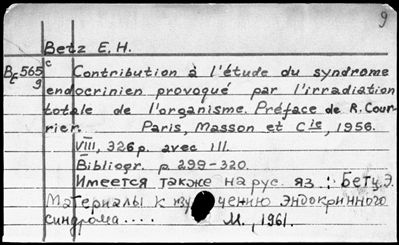 9
Betz E. H.
Bc565 Contribution à l'étude du syndrome
9 endocrinien provoqué par l'irradiation
totale de l'organisme. Préface de R. Cour-
rier. Paris, Masson et Cie, 1956.
VIII, 326 p. avec ill.
Bibliogr. p 299-320.
Имеется также на рус. яз : Бетц Э.
Материалы к изучению эндокринного
синдрома.... М., 1961.